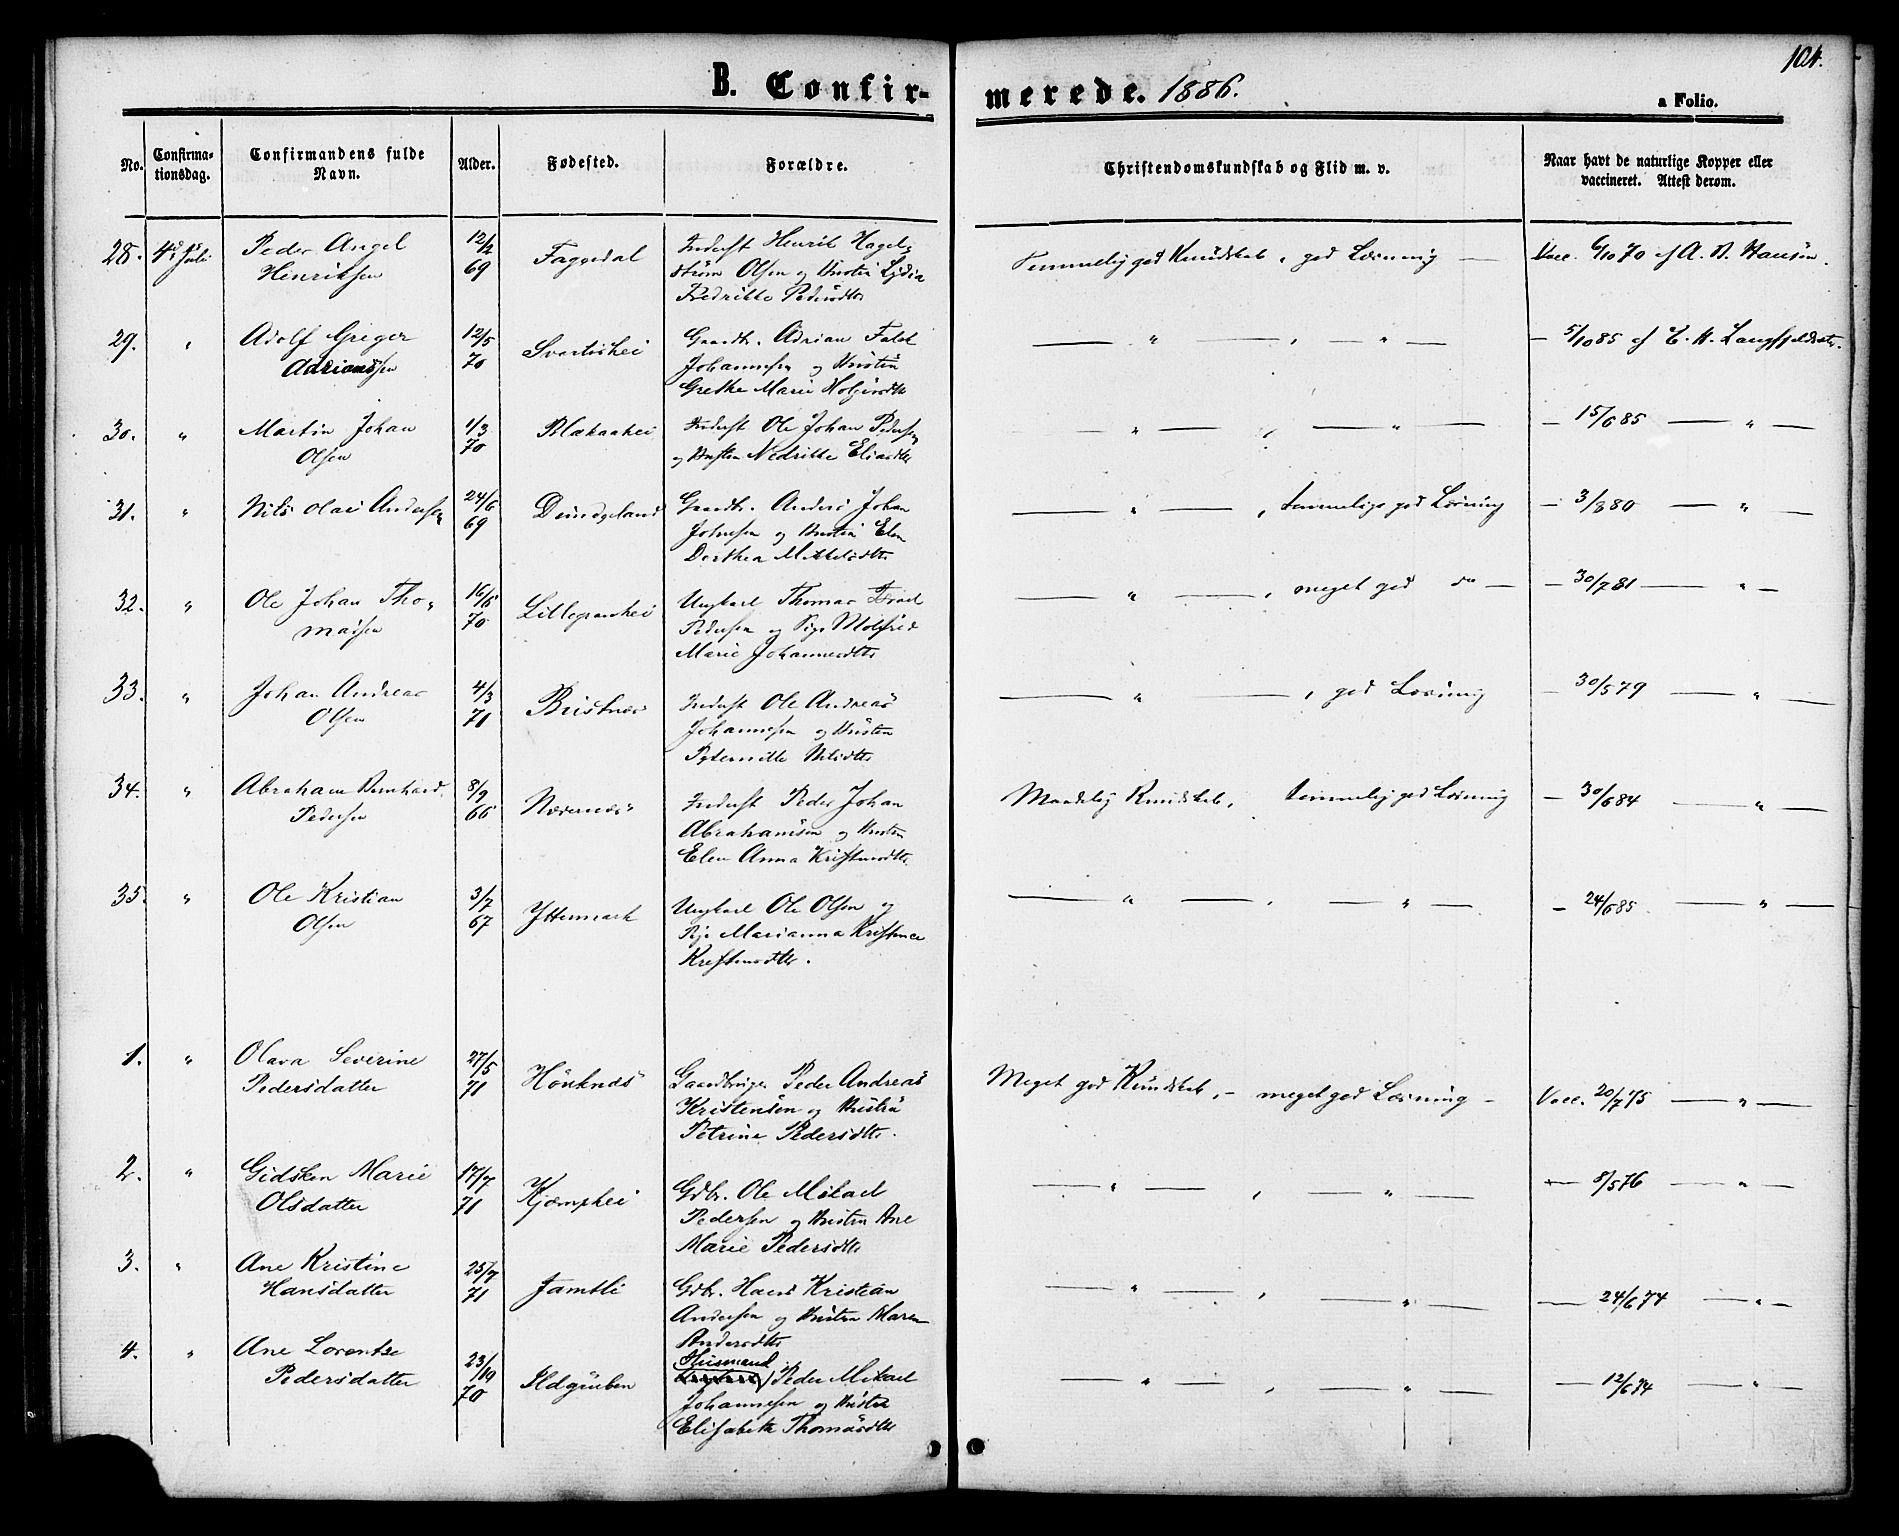 104.
B. Confir- merede. 1886.
a Folio.
No. Confirma-tionsdag. Confirmandens fulde Navn. Alder. Fødested. Forældre. Christendomskundskab og Flid m. v. Naar havt de naturlige Kopper eller vaccineret. Attest derom.
28. 4d Juli Peder Angel 12/2 Fagredal Inderst Henrik Hagel, Temmelig god Kundskab, god Læsning — Vacc. 6/10 70 af A. B. Hansen.
Henriksen 69 strøm Olsen og Hustru Lydia
Fredrikke Pedersdtr
29. " Adolf Greger 12/5 Svartishei Gaardbr. Adrian Falch — " — , — " — — 5/10 85 af E. H. Langfjeldæter.
Adrianssen 70 Johannesen og Hustru
Grethe Marie Holgersdtr
30. " Martin Johan 1/3 Blakaahei Inderst Ole Johan Pedersen — " — , — " — — 15/6 85 — " —
Olsen 70 og Hustru Nedrikke Eliasdtr
31. " Nils Olai Andersen 24/6 Dundgeland Gaardbr. Anders Johan — " — , temmelig god Læsning — 3/8 80 — " —
69 Johnsen og Hustru Elen
Dorthea Mikkelsdtr
32. " Ole Johan Tho, 16/5 Lillegranhei Ungkarl Thomas — " — , meget god do — — 30/7 81 — " —
massen 70 Pedersen og Pige
Marie Johannesdtr
33. " Johan Andreas 4/3 Bustnes Inderst Ole Andreas — " — , god Læsning — 30/5 79 — " —
Olsen 71 Johannesen og Hustru
Peternille Nilsdtr
34. " Abraham Bernhard 8/9 Nævernes Inderst Peder Johan Maadelig Kundskab, temmelig god Læsning — 30/6 84 — " —
Pedersen 66 Abrahamsen og Hustru
Elen Anna Kristensdtr
35. " Ole Kristian 3/7 Ytternmark Ungkarl Ole Olsen og — " — , — " — — 24/6 85. — " —
Olsen 67 Pige Marianna Kristense
Kristensdtr.
1. " Olava Severine 27/5 Hönknes Gaardbruger Peder Andreas Meget god Kundskab, — meget god Læsning — Vacc. 20/7 75 — " —
Pedersdatter 71 Kristensen og Hustru
Petrine Pedersdtr.
2. " Gidsken Marie 17/7 Kjæmphei Gdbr. Ole Mikael — " — , — " — — 8/5 76 — " —
Olsdatter 71 Pedersen og Hustru Ane
Marie Pedersdtr
3. " Ane Kristine 25/7 Jamtli Gdbr. Hans Kristian — " — , — " — — 24/6 74 — " —
Hansdatter 71 Andersen og Hustru Maren
Andersdtr
4. " Ane Lorentze 23/10 Ildgruben Husmand Peder Mikael — " — , — " — — 12/6 74 — " —
Pedersdatter 70 Johannesen og Hustru
Elisabeth Thomasdtr